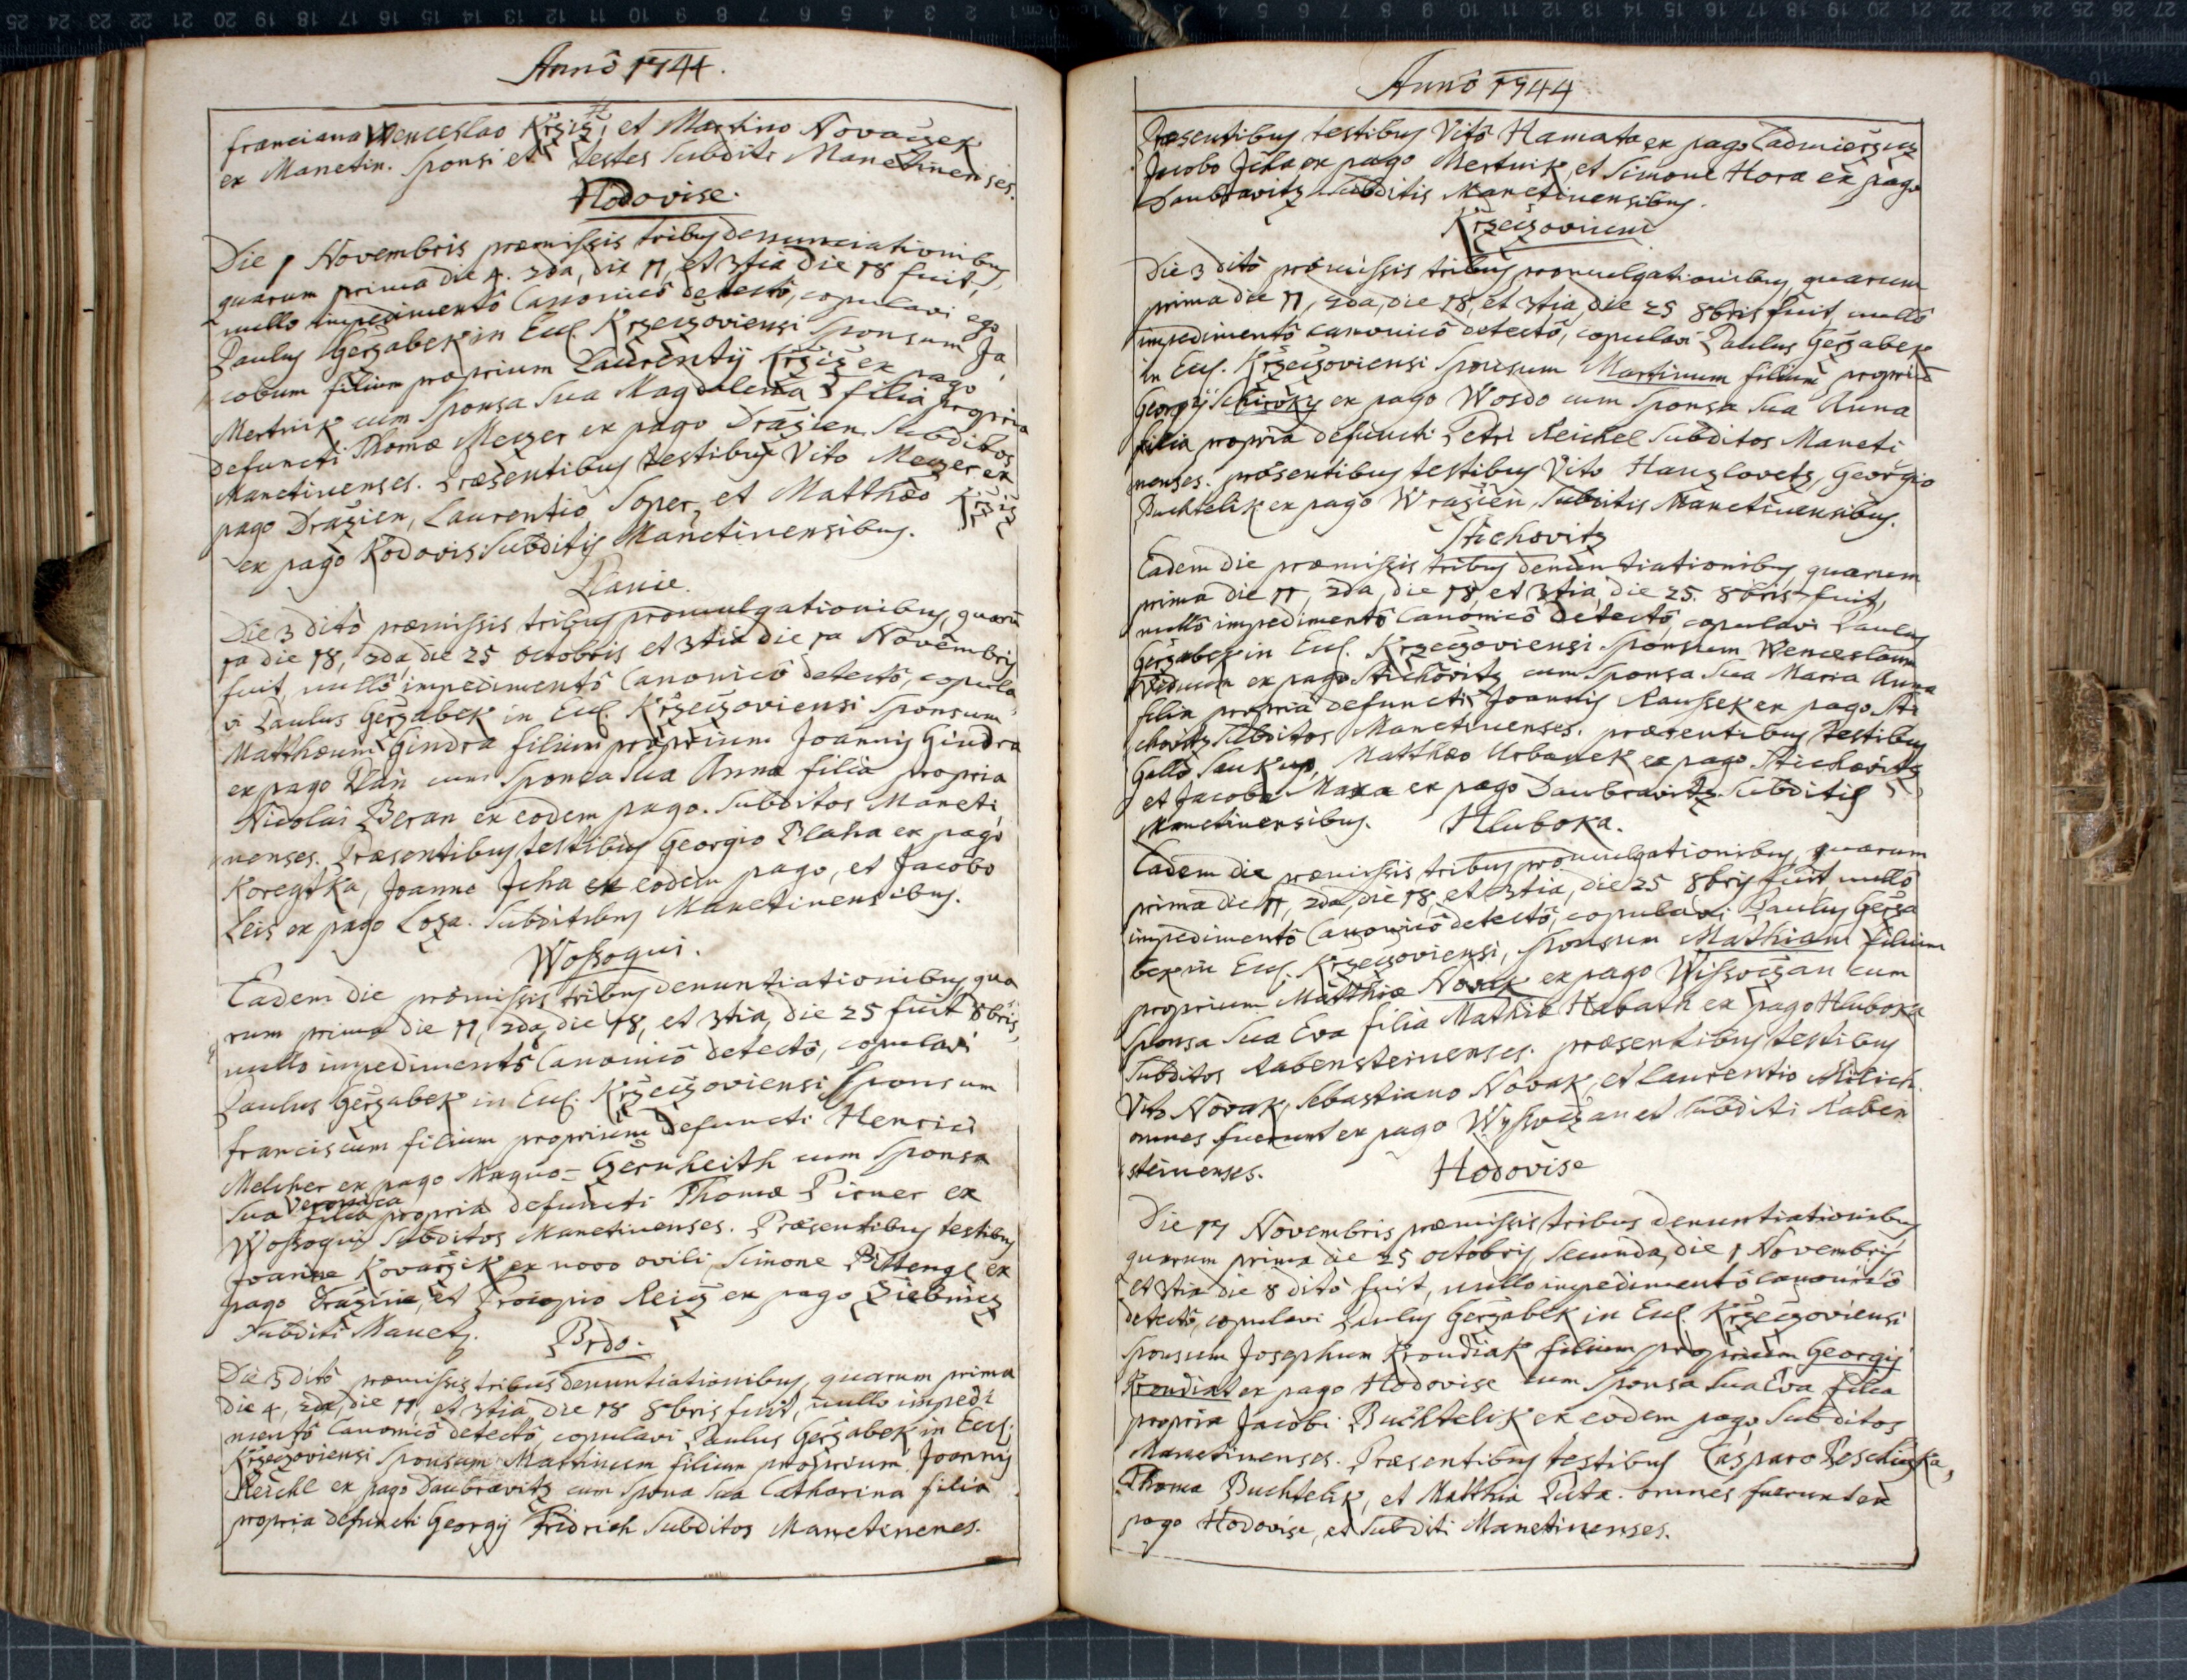 Annô 1744.
franciana Wenceslao Kržiž, et Martino Novaczek
ex Manetin. Sponsi et testes Subditi Manetinenses.
Hodovise.
Die 1 Novembris præmissis tribus denunciationibus,
quarum prima die 4. 2da, die 11, et 3tia die 18 fuit,
nullo impedimentô Canonicô detectô, copulavi ego
Paulus Geržabek in Eccl. Kržeczoviensi Sponsum Ja,
cobum filium proprium Laurentij Kržiž ex pago
Mertnik cum Sponsa Sua Magdalena filia propria
defuncti Thomæ Meczer ex pago Dražien Subditos
Manetinenses. Præsentibus testibus Vito Meczer ex
pago Dražien, Laurentio Soper, et Matthæo Kržiž
ex pago Hodovis Subditis Manetinensibus.
Planie.
Die 3 ditô præmissis tribus promulgationibus, quarū
1a die 18, 2da, die 25 octobris et 3tia die 1a Novembris
fuit, nullô impedimentô Canonicô detectô, copula
vi Paulus Geržabek in Eccl. Kržeczoviensi Sponsum
Matthæum Gindra filium proprium Joannis Gindra
ex pago Plan cum Sponsa Sua Anna filia propria
Nicolai Beran ex eodem pago. Subditos Maneti,
nenses. Præsentibus testibus Georgio Blaha ex pago
Koregtka, Joanne Jcha ex eodem pago, et Jacobo
Leis ex pago Loza. Subditibus Manetinensibus.
Wossoqui.
Eadem die præmissis tribus denuntiationibus, qua
rum prima die 11, 2da, die 18, et 3tia, die 25 fuit 8bris,
nullo impedimentô Canonicô detectô, copulavi
Paulus Geržabek in Eccl. Kržeczoviensi Sponsum
franciscum filium proprium defuncti Henrici
Melcher ex pago Magno = Gernheith cum Sponsa
Veronica
Sua filia propria defuncti Thomæ Pirner ex
Wossoqui Subditos Manetinenses. Præsentibus testibus
Joanne Kovaržik ex novo ovili, Simone Pittengl ex
pago Dražinie, et Procopio Reicz ex pago Ziebnicz
Subditi Manet.
Brdo.
Die 3 ditô præmissis tribus denuntiationibus, quarum prima
die 4, 2da, die 11, et 3tia die 18 8bris fuit, nullo impedi
mentô Canonicô detectô, copulavi Paulus Geržabek in Eccl.
Kržeczoviensi Sponsum Martinum filium proprium Joannis
Reichl ex pago Daubravitz cum Sponsa Sua Catharina filia
propria defuncti Georgij Fridrich Subditos Manetinenes.
Annô 1744
Præsentibus testibus Vitô Hamata ex pago Ladmieržicz
Jacobo Jcha ex pago Mertnik, et Simone Hora ex pago
Daubravitz Subditis Manetinensibus.
Kržeczovicuni
Die 3 ditô præmissis tribus promulgationibus, quarum
prima die 11, 2da, die 18, et 3tia, die 25 8bris fuit, nullô
impedimentô canonicô detectô, copulavi Paulus Geržabek
in Eccl. Kržeczoviensi Sponsum Martinum filium propriū
Georgij Schiroky ex pago Wosdo cum Sponsa Sua Anna
filia propria defuncti Petri Reichel Subditos Maneti
nenses. præsentibus testibus Vito Hanzlovetz, Georgio
Buchtelik ex pago Wražien, Subditis Manetinensibus.
Stichovitz
Eadem die præmissis tribus denuntiationibus, quarum
prima die 11, 2da, die 18, et 3tia, die 25. 8bris fuit,
nullô impedimentô Canonicô detectô, copulavi Paulus
Geržabek in Eccl. Kržeczoviensi Sponsum Wenceslaum
Viduum ex pago Stichovitz cum Sponsa Sua Maria Anna
filia propria defuncti Joannis Raussek ex pago Sti
chovitz Subditos Manetinenses. præsentibus testibus
Gallô Saukup, Matthæo Urbanek ex pago Stichovitz
et Jacobo Mara ex pago Daubravitz Subditis
Manetinensibus.
Hluboka.
Eadem die præmissis tribus promulgationibus, quarum
prima die 11, 2da, die 18, et 3tia, die 25 8bris fuit, nullô
impedimentô Canonicô detectô, copulavi Paulus Gerža
bek in Eccl. Kržeczoviensi, Sponsum Mathiam filium
proprium Matthiæ Novak ex pago Wissoczan cum
Sponsa Sua Eva filia Mathiæ Habath ex pago Hluboka
Subditos Rabensteinenses. præsentibus testibus
Vito Novak, Sebastiano Novak, et Laurentio Milich.
omnes fuerunt ex pago Wyssoczan et Subditi Raben
steinenses.
Hodovise
Die 17 Novembris præmissis tribus denuntiationibus,
quarum prima die 25 octobris, Secunda, die 1 Novembris
et 3tia die 8 ditô fuit, nullo impedimentô canonicô
detectô, copulavi Paulus Geržabek in Eccl. Kržeczoviensi
Sponsum Josephum Kroudiak filium proprium Georgij
Kroudiak ex pago Hodovise cum Sponsa Sua Eva filia
propria Jacobi Buchtelik ex eodem pago, Subditos
Manetinenses. Præsentibus testibus Casparo Peschiczka,
Thoma Buchtelik, et Matthia Tuta. omnes fuerunt ex
pago Hodovise, et Subditi Manetinenses.